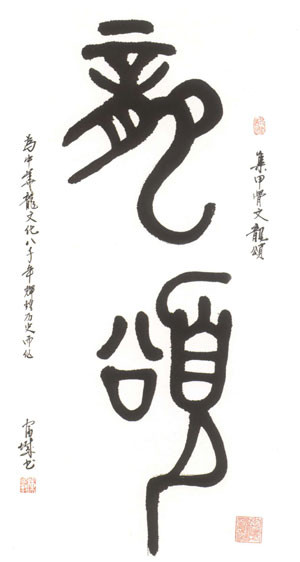 集甲骨文龍頌
龍頌
為中華龍文化八千年輝煌历史而作